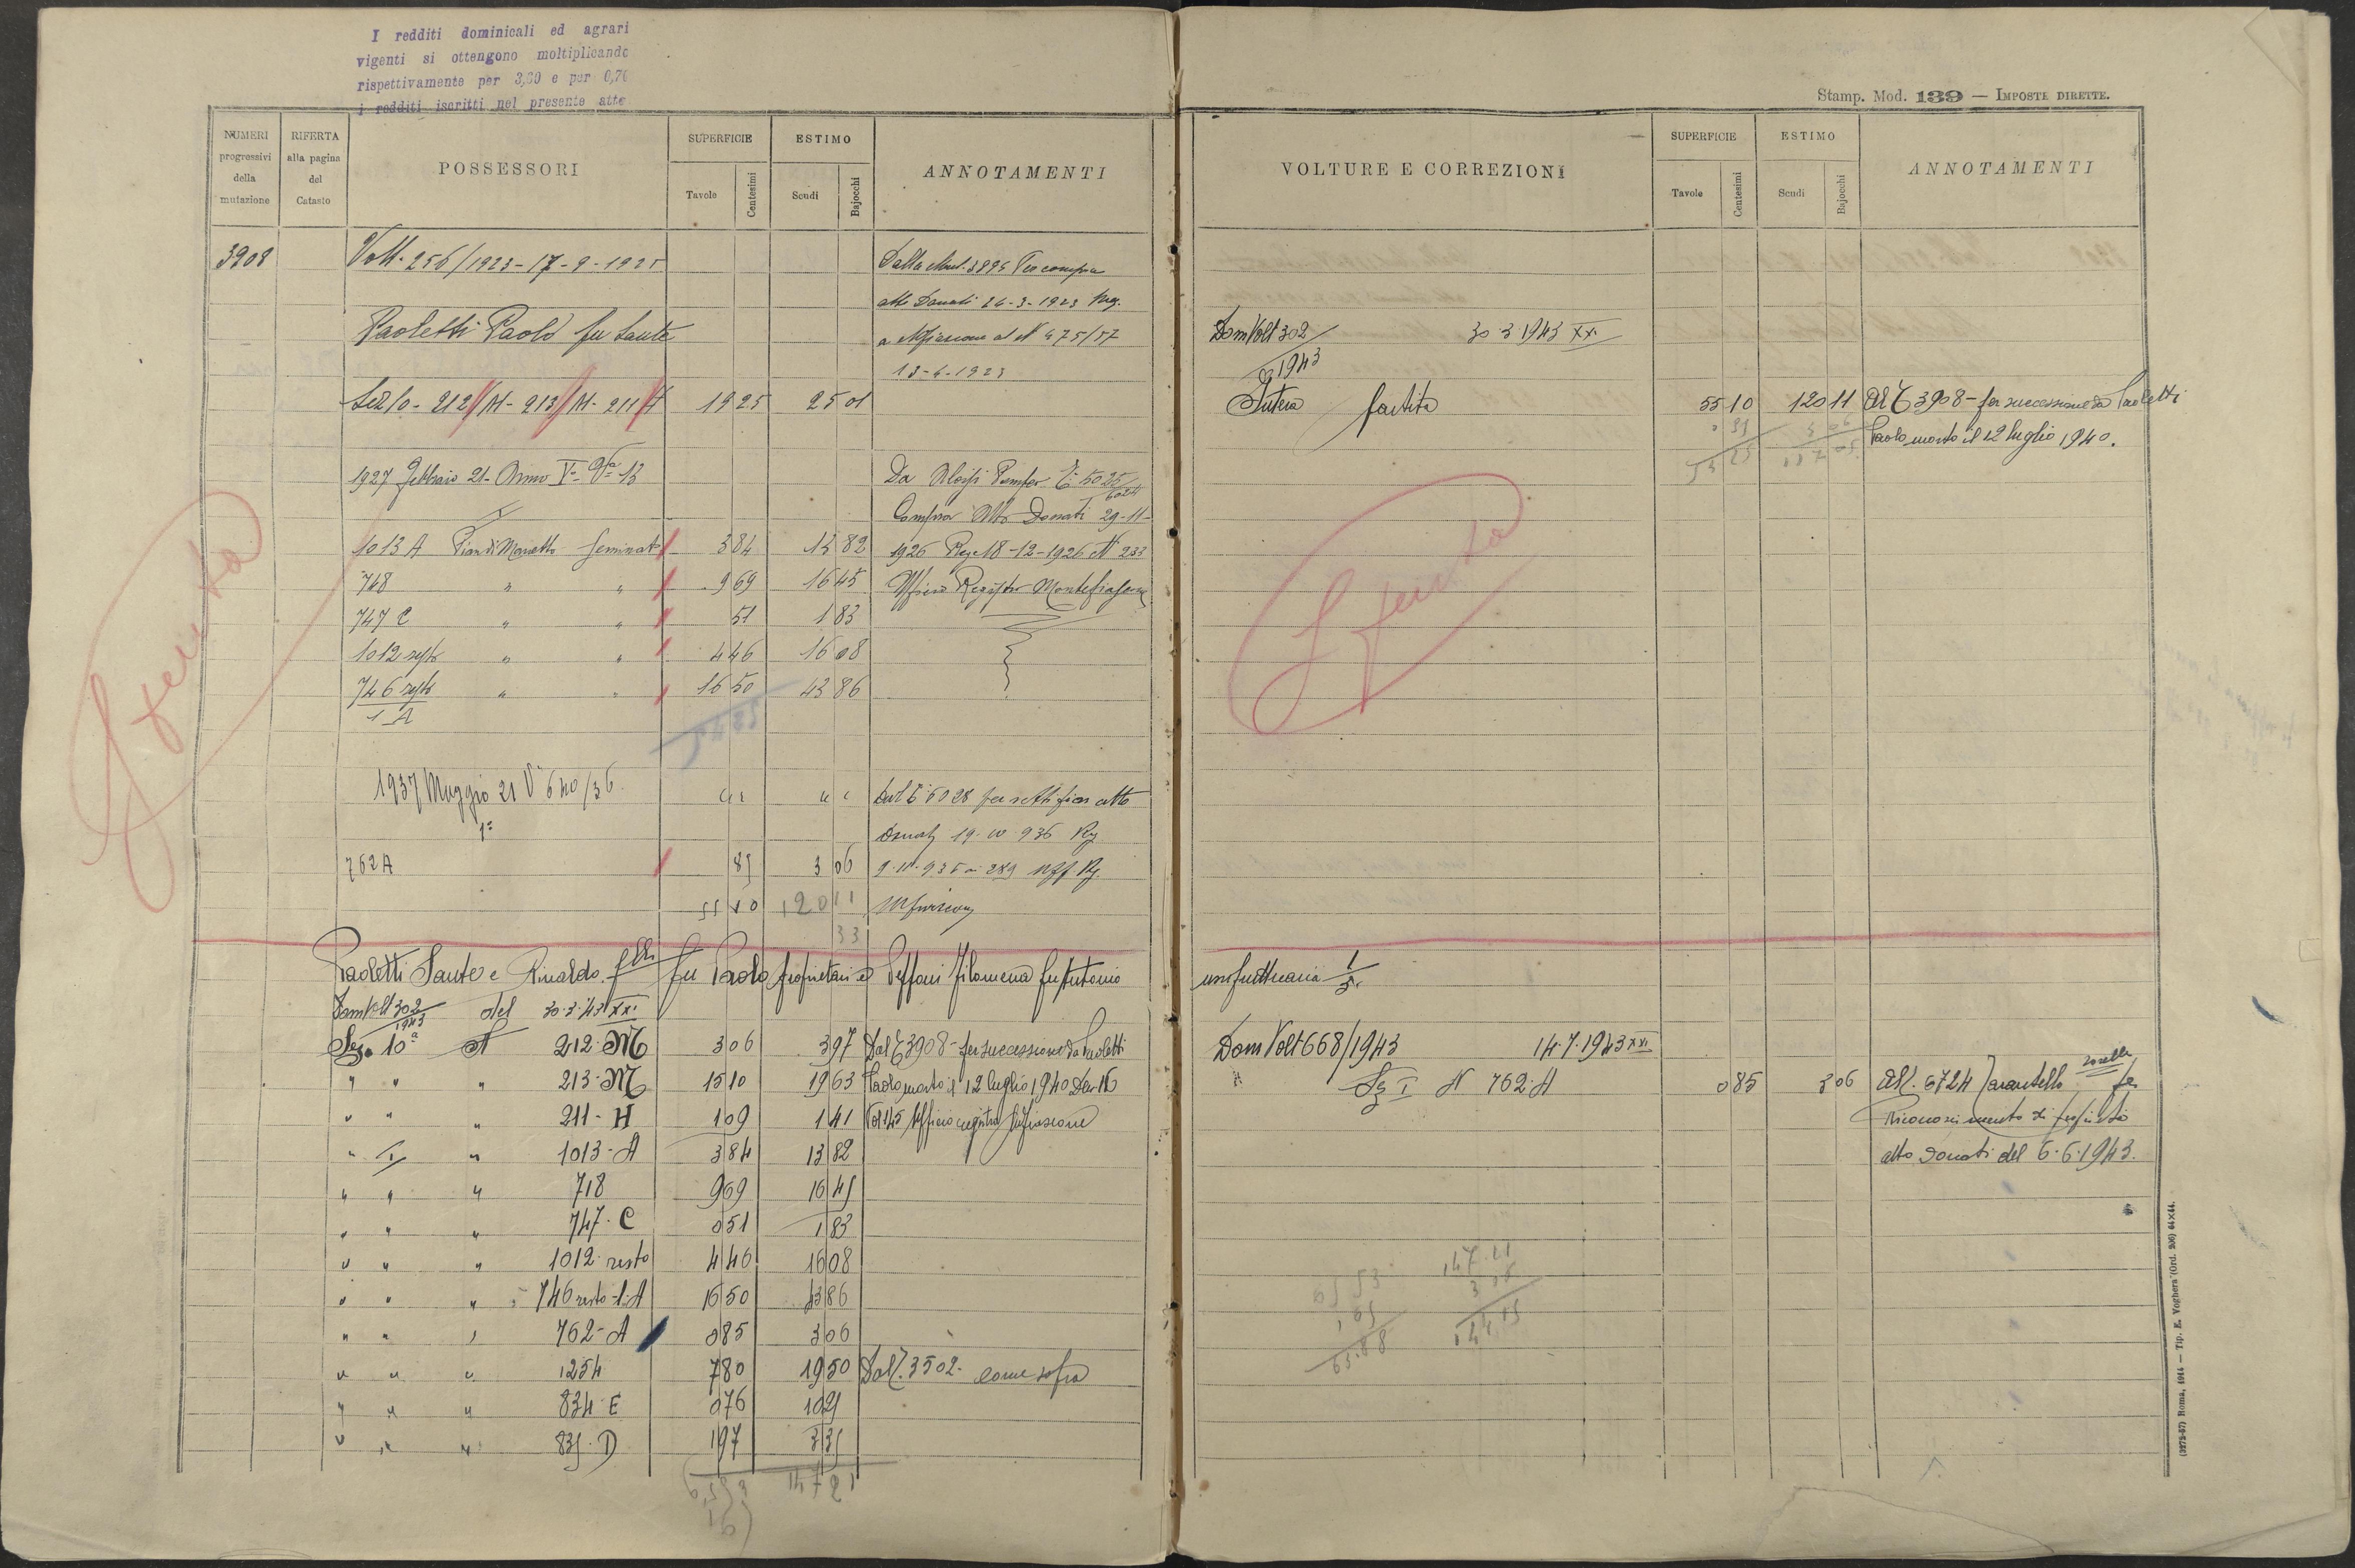 I redditi dominicali ed agrari
vigenti si ottengono moltiplicando
rispettivamente per 3,30 e per 0,70
i redditi iscritti nel presente atto
NUMERI progressivi della mutazione
RIFERTA alla pagina del Catasto
POSSESSORI
SUPERFICIE
Tavole Centesimi
ESTIMO
Scudi Bajocchi
ANNOTAMENTI
3908 Volt. 256/1923 - 17-9-1925
Dalla Mut. 3895 Per compra
atto Donati 24-3-1923 Reg.
Paoletti Paolo fu Sante
a Mfiascone al N 475/57
13-4-1923
Sez 10 - 212/M - 213/M - 211/H 19 25 25 01
1927 Febbraio 21 - Anno V
Da
Compra Atto Donati 29-11-
1013 A Pian di Monetto Seminat 3 84 13 82 1926 Reg 18-12-1926 N 233
748 " " 9 69 16 45 Ufficio Registro Montefiascone
747 C " " 51 1 83
1012 resto " " 4 46 16 08
746 resto " " 16 50 43 86
1 A
54 25
1937 Maggio 21 V 640/36
Dal 6028 per rettifica atto
Donati 19.10.936 Reg
762 A 85 3 06
55 10 120 11 Mfiascone
33
Sferita
Paoletti Sante e Rinaldo flli fu Paolo proprietari e Peffoni Filomena fu Antonio
Dom Volt 302/1943 del 30.3.43 XXI.
Sez. 10a N 212 - M 3 06 3 97 Dal 3908 - per successione da Paoletti
" " " 213 - M 15 10 19 63 Paolo morto il 12 luglio 1940 Den 16
" " " 211 - H 1 09 1 41 Vol 145 Ufficio registro Mfiascone
" I " 1013 - A 3 84 13 82
" " " 718 9 69 16 45
" " " 747 - C 0 51 1 83
" " " 1012 - resto 4 46 16 08
" " " 746 resto - 1 A 16 50 43 86
" " " 762 - A 0 85 3 06
" " " 1254 7 80 19 50 Dal. 3502. come sopra
" " " 834 - E 0 76 1 02
" " " 835 - D 1 97 3 35
147 21
Stamp. Mod. 139 — IMPOSTE DIRETTE.
VOLTURE E CORREZIONI
SUPERFICIE
Tavole Centesimi
ESTIMO
Scudi Bajocchi
ANNOTAMENTI
Dom Volt 302/1943 30 3 1943 XXI.
Intera partita 55 10 120 11 Al 3908 - per successione da Paoletti
Paolo morto il 12 luglio 1940.
Sferita
usufruttuaria 1/3.
Dom Volt 668/1943 14.7.1943 XXI
" Sez I N 762 A 0 85 3 06 Al. 6724 Tarantello per
Riconoscimento di proprietà
atto Donati del 6.6.1943.
147.21
3 06
144 15
65 53
63.88
(3275-57) Roma, 1914 — Tip. E. Voghera (Ord. 206) 64×44.